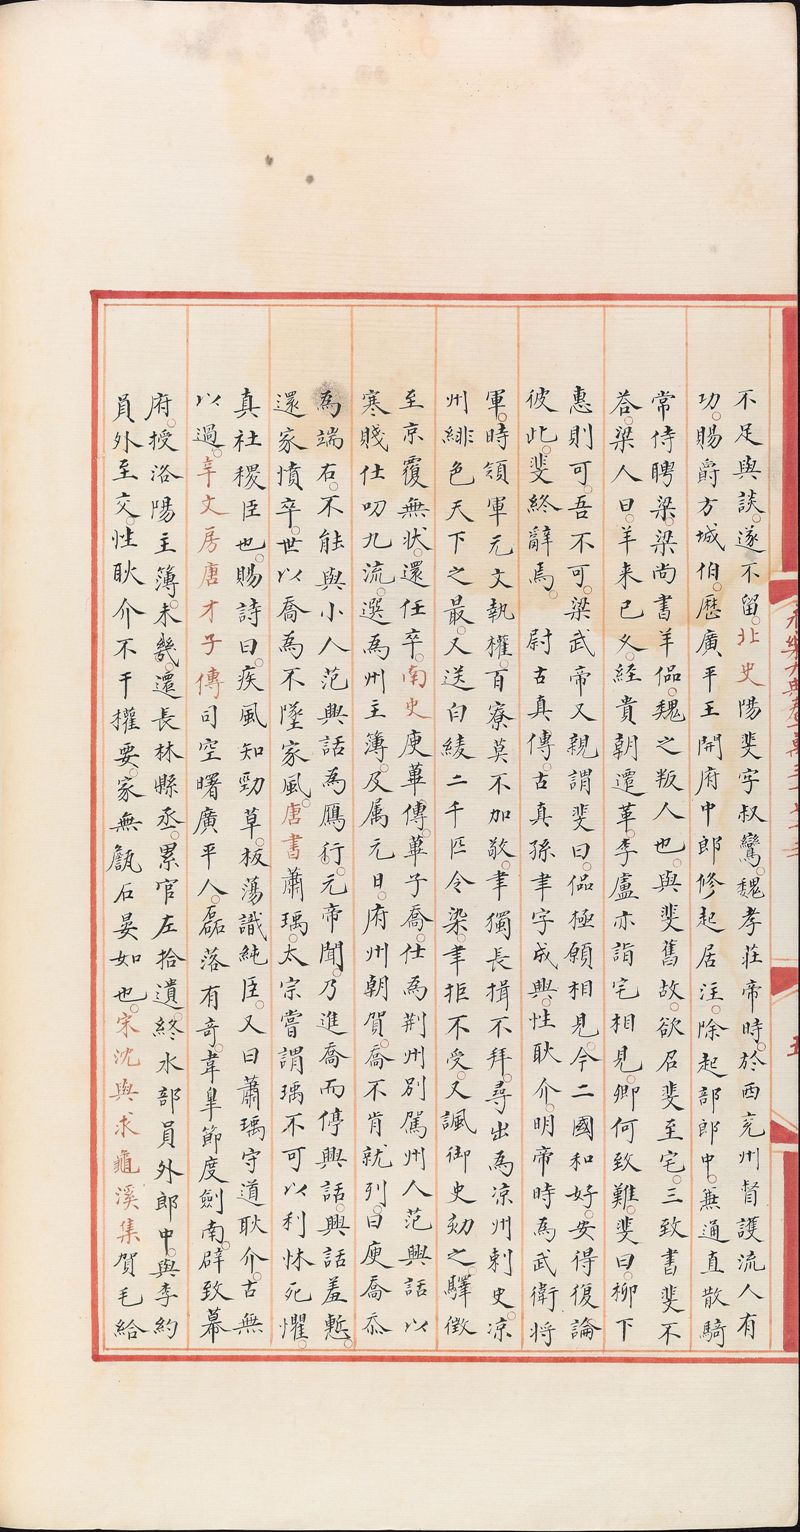 不足與談遂不留北史陽斐字叔鸞魏孝莊帝時於西兖州督護流人有
功賜爵方城伯歷廣平王開府中郎修起居注除起部郎中兼通直散騎
常侍聘梁梁尚書羊侃魏之叛人也與斐舊故欲召斐至宅三致書斐不
荅梁人曰羊来已久經貴朝遷革李盧亦詣宅相見卿何致難斐曰柳下
惠則可吾不可梁武帝又親謂斐曰侃極願相見今二國和好安得復論
彼此斐終辭焉 尉古真傳古真孫聿字成興性耿介明帝時為武衛將
軍時領軍元文執權百寮莫不加敬聿獨長揖不拜尋出為凉州刺史凉
州緋色天下之最又送白綾二千匹令染聿拒不受又諷御史劾之驛徵
至京覆無状還任卒南史庾蓽傳蓽子喬仕為荆州别駕州人范興話以
寒賤仕叨九流選為州主簿及属元日府州朝賀喬不肯就列曰庾喬忝
為端右不能與小人范興話為鴈行元帝聞乃進喬而停興話興話羞慙
還家憤卒世以喬為不墜家風唐書蕭瑀太宗嘗謂瑀不可以利怵死懼
真社稷臣也賜詩曰疾風知勁草板蕩識純臣又曰蕭瑀守道耿介古無
以過辛文房唐才子傳司空曙廣平人磊落有奇韋臯節度劍南辟致幕
府授洛陽主簿未幾還長林縣丞累官左拾遺終水部員外郎中與李約
員外至交性耿介不干權要家無甔石晏如也宋沈與求龜溪集賀毛給
永樂大典卷
五